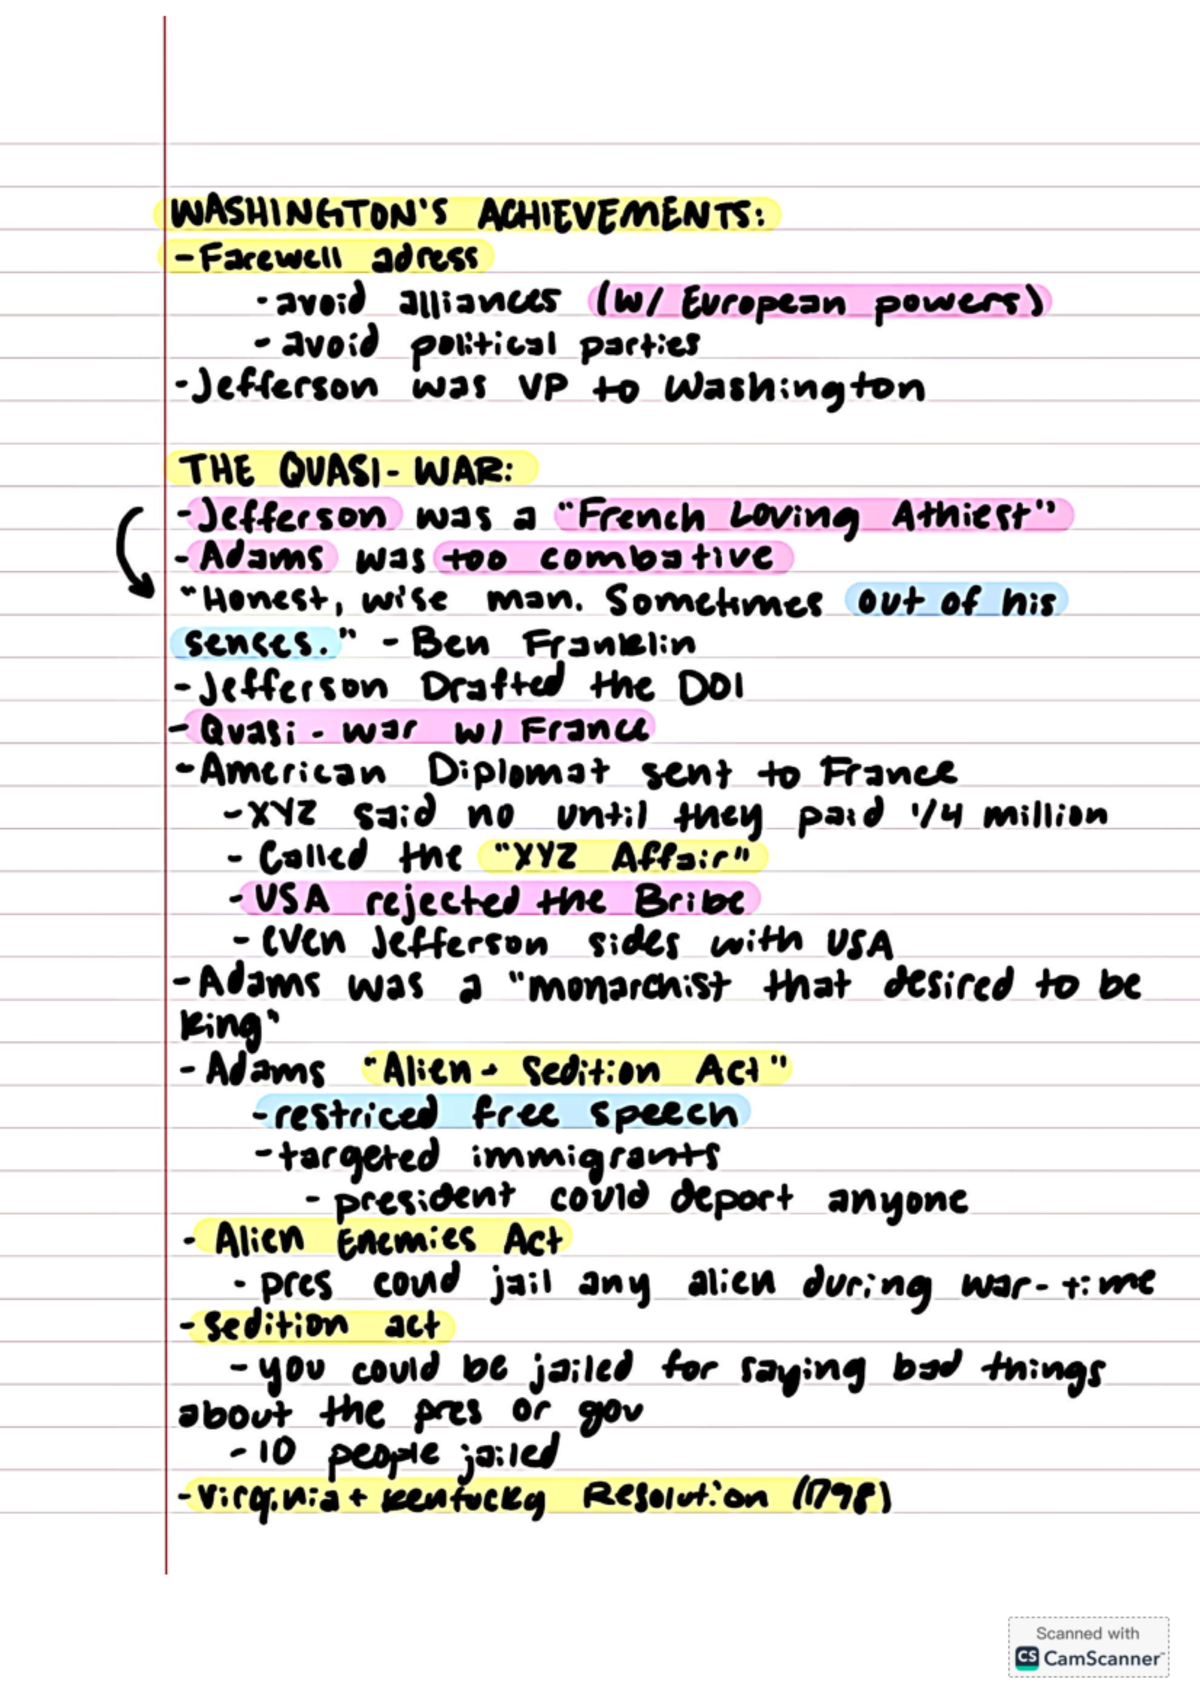 WASHINGTON'S ACHIEVEMENTS:
-Farewell adress
-avoid alliances (w/ European powers)
-avoid political parties
-Jefferson was VP to Washington
THE QUASI-WAR:
-Jefferson was a "French Loving Athiest"
-Adams was too combative
"Honest, wise man. Sometimes out of his
senses." - Ben Franklin
-Jefferson Drafted the DOI
-Quasi-war w/ France
-American Diplomat sent to France
-XYZ said no until they paid 1/4 million
-Called the "XYZ Affair"
-USA rejected the Bribe
-even Jefferson sides with USA
-Adams was a "monarchist that desired to be
king"
-Adams "Alien- Sedition Act"
-restriced free speech
-targeted immigrants
-president could deport anyone
-Alien Enemies Act
-pres could jail any alien during war-time
-Sedition act
-you could be jailed for saying bad things
about the pres or gov
-10 people jailed
-Virginia + Kentucky Resolution (1798)
Scanned with
CS CamScanner